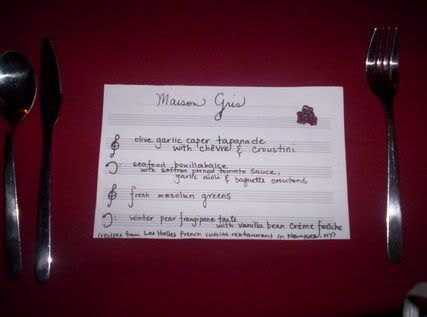 Maison Gris
olive garlic caper tapanade
with chèvre & croustini
seafood bouillabaise
with saffron pernod tomato sauce,
garlic aioli & baguette croutons
fresh mesclun greens
winter pear frangipane tarte
with vanilla bean crème fraîche
(recipes from Les Halles French cuisine restaurant in New York, NY)